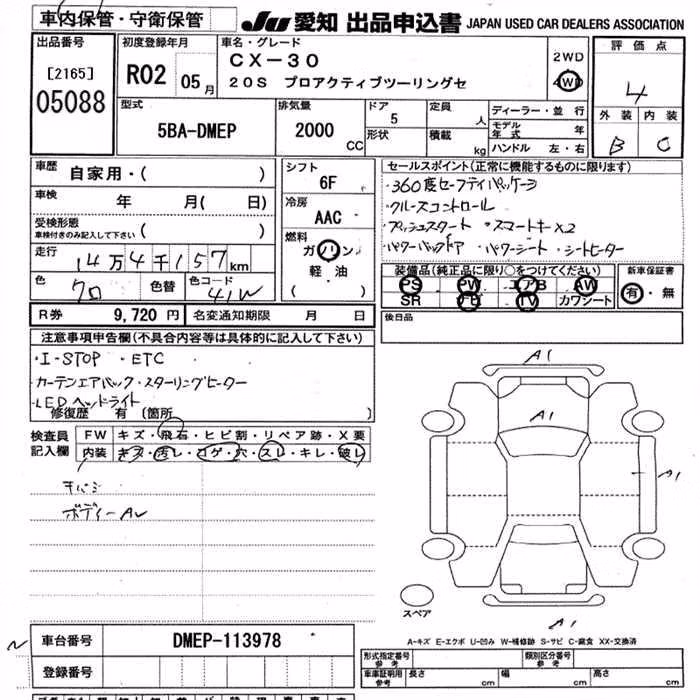 車内保管・守衛保管
JU 愛知 出品申込書 JAPAN USED CAR DEALERS ASSOCIATION
出品番号
[2165]
05088
初度登録年月
R02 05月
車名・グレード
CX-30
20S プロアクティブツーリングセ
2WD
4WD
評価点
4
外装 内装
B C
型式
5BA-DMEP
排気量
2000 CC
ドア
5
形状
定員
人
積載
kg
ディーラー・並行
モデル年式 年
ハンドル 左・右
車歴 自家用・( )
車検 年 月( 日)
受検形態
車検付きのみ記入して下さい ( )
走行 14万4千157km
色 クロ 色替 色コード 41W
シフト
6F
冷房
AAC
燃料
ガソリン
軽油
( )
セールスポイント(正常に機能するものに限ります)
・360度セーフティパッケージ
・クルーズコントロール
・プッシュスタート ・スマートキーX2
・パワーバックドア ・パワーシート ・シートヒーター
装備品(純正品に限り○をつけてください)
PS PW エアB AW
SR ナビ TV カワシート
新車保証書
有・無
R券 9,720円 名変通知期限 月 日
後日品
注意事項申告欄(不具合内容等は具体的に記入して下さい)
・I-STOP ・ETC
・カーテンエアバック・ステアリングヒーター
・LEDヘッドライト
修復歴 有(箇所 )
検査員記入欄
FW キズ・飛石・ヒビ割・リペア跡・X要
内装 キズ・汚レ・コゲ・穴・スレ・キレ・破レ
ボディーAU
A1
A1
A1
A1
スペア
A-キズ E-エクボ U-凹み W-補修跡 S-サビ C-腐食 XX-交換済
車台番号 DMEP-113978
登録番号
形式指定番号 参考
類別区分番号 参考
車庫証明用 参考 長さ cm 幅 cm 高さ cm